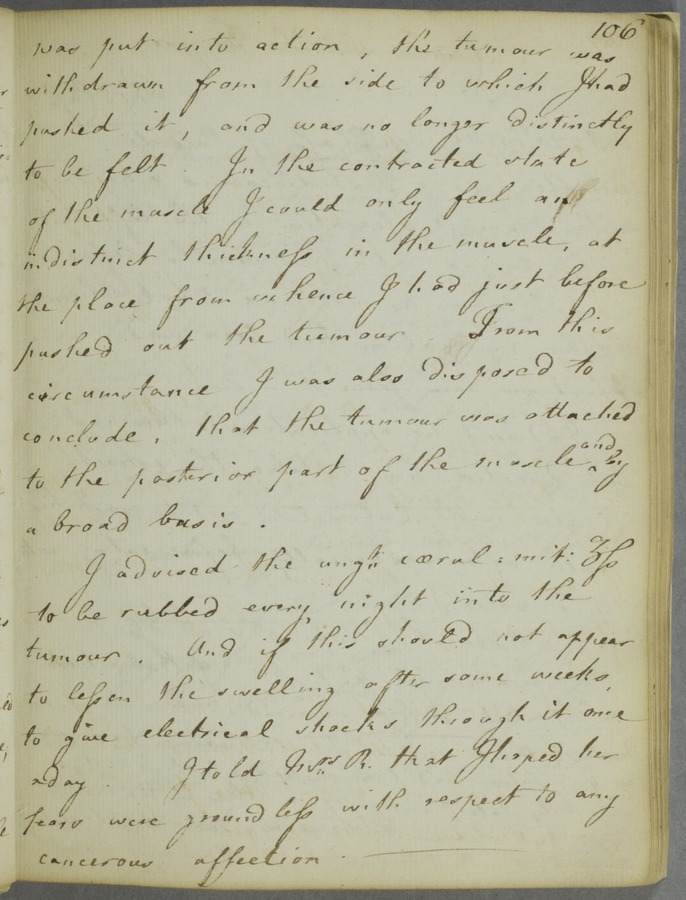 106
was put into action, the tumour was
withdrawn from the side to which I had
pushed it, and was no longer distinctly
to be felt. In the contracted state
of the muscle I could only feel an
indistinct thickneſs in the muscle, at
the place from whence I had just before
pushed out the tumour From this
circumstance I was also disposed to
conclude, that the tumour was attached
to the posterior part of the muscle and by
a broad basis.
I advised the ungt. cærul: mit: ʒſs
to be rubbed every night into the
tumour. And if this should not appear
to leſsen the swelling after some weeks,
to give electrical shocks through it one
a day. I told Mrs. R. that I hoped her
fears were groundleſs with respect to any
cancerous affection.